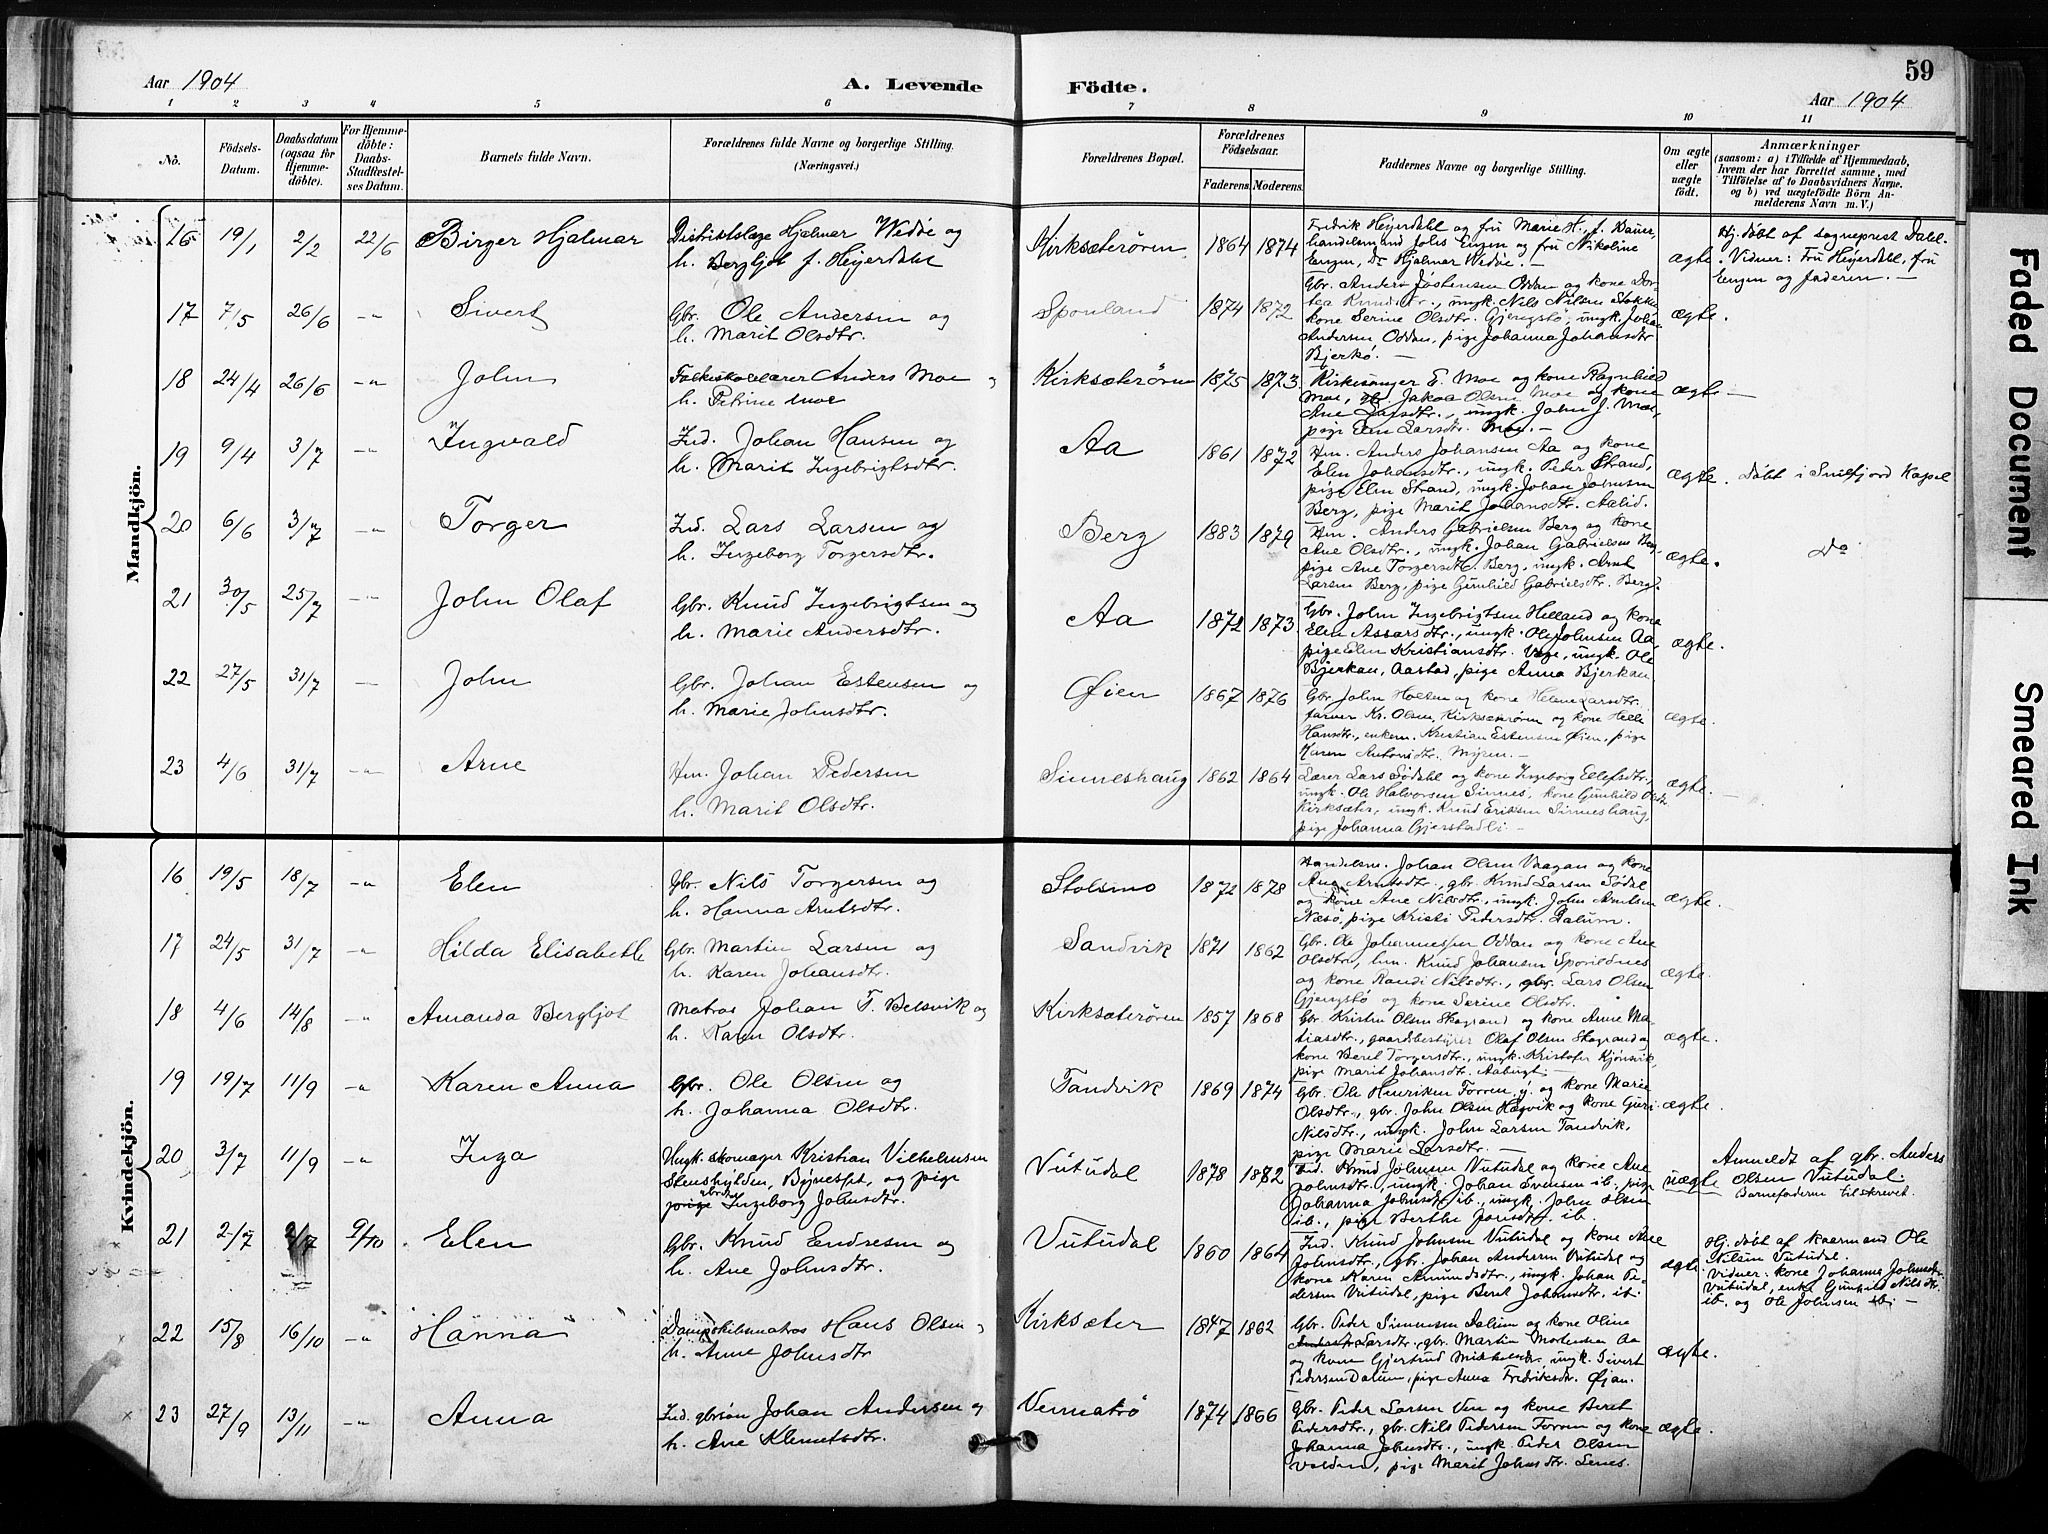 59
Aar 1904
A. Levende
Födte.
Aar 1904
1 2 3 4 5 6 7 8 9 10 11
No.
Födsels-
Datum.
Daabsdatum
(ogsaa for
Hjemme-
döbte).
For Hjemme-
döbte:
Daabs-
Stadfæstel-
ses Datum.
Barnets fulde Navn.
Forældrenes fulde Navne og borgerlige Stilling.
(Næringsvei.)
Forældrenes Bopæl.
Forældrenes
Födselsaar.
Faderens.
Moderens.
Faddernes Navne og borgerlige Stilling.
Om ægte
eller
uægte
födt.
Anmærkninger
(saasom: a) i Tilfælde af Hjemmedaab,
hvem der har forrettet samme, med
Tilföielse af to Daabsvidners Navne,
og b) ved uægtefödte Börn An-
melderens Navn m. V.)
Mandkjön.
16 19/1 2/2 22/6 Birger Hjalmar
Distriktslæge Hjalmar Wedøe og
h. Bergljot f. Heyerdahl
Kirksæterøren. 1864 1874
Fredrik Heyerdahl og fru Marie H., f. Daue,
handelsmand Johs Engen og fru Nikoline
Engen, Dr Hjalmar Wedøe. —
ægte
Hj. døbt af sogneprest Dahl.
- Vidner: Fru Heyerdahl, fru
Engen og faderen. —
17 7/5 26/6 -"- Sivert
Gbr. Ole Andersen og
h. Marit Olsdtr.
1874 1872
Gbr. Anders Jøstensen Oddan og kone Dor-
tea Knudsdtr., ungk. Nils Nilsen Stokke
kone Serine Olsdtr. Gjengstø, ungk. Joha
Andersen Oddan, pige Johanna Johansdtr
Bjerkø. —
ægte.
18 24/4 26/6 -"- John
Folkeskolelærer Anders Moe og
h. Petrine Moe
Kirksæterøren 1875 1873.
Kirkesanger E. Moe og kone Ragnhild
Moe, gbr. Jakob Olsen Moe og kone
Ane Larsdtr., ungk. John J. Moe,
pige Elen Larsdtr. Moe. —
ægte —
19 9/4 3/7 -"- Ingvald
Ind. Johan Hansen og
h. Marit Ingebrigtsdtr.
Aa 1861 1872
Hm. Anders Johansen Aa og kone
Elen Johansdtr., ungk. Peder Strand,
pige Elen Strand, ungk. Johan Johnsen
Berg, pige Marit Johansdtr. Aalid.
ægte. Døbt i Snilfjord Kapel
20 6/6 3/7 -"- Torger
Ind. Lars Larsen og
h. Ingeborg Torgersdtr.
Berg 1883 1879
Hm. Anders Gabrielsen Berg og kone
Ane Olsdtr., ungk. Johan Gabrielsen Berg,
pige Ane Torgersdtr. Berg, ungk. Arnt
Larsen Berg, pige Gunhild Gabrielsdtr. Berg.
ægte. Do
21 30/5 25/7 -"- John Olaf
Gbr. Knud Ingebrigtsen og
h. Marie Andersdtr.
Aa 1872 1873.
Gbr. John Ingebrigtsen Helland og kone
Elen Assarsdtr., ungk. Ole Johnsen Aa,
pige Elen Kristiansdtr. Vage, ungk. Ole
Bjerkan, Aastad, pige Anna Bjerkan
ægte.
22 27/5 31/7 — John
Gbr. Johan Estensen og
h. Marie Johnsdtr.
Øien 1867 1876
Gbr. John Hollen og kone Helene Larsdtr.
farver Kr. Olsen, Kirksæterøren og kone Helle
Hansdtr., enkem. Kristian Estensen Øien, pige
Karen Antonsdtr. Myren. —
ægte.
23 4/6 31/7 -"- Arne
Hm. Johan Pedersen
h. Marit Olsdtr.
Sinneshaug 1862 1864
Lærer Lars Sødahl og kone Ingeborg Ellefsdtr.,
ungk. Ole Halvorsen Sinnes, kone Gunhild Olsdtr.
Kirksæter, ungk. Knud Eriksen Sinneshaug,
pige Johanna Gjerstadli —
ægte. —
Kvindekjön.
16 19/5 18/7 -"- Elen
Gbr. Nils Torgersen og
h. Hanna Arntsdtr.
Stolsmo 1872 1878
Handelsm. Johan Olsen Vaagan og kone
Ane Arntsdtr., gbr. Knud Larsen Södal
og kone Ane Nilsdtr., ungk. John Arntsen
Næsö, pige Kristi Pedersdtr. Dalum.
ægte.
17 24/5 31/7 -"- Hilda Elisabeth
Gbr. Martin Larsen og
h. Karen Johansdtr.
Sandvik 1871 1862
Gbr. Ole Johannessen Oddan og kone Ane
Olsdtr., hm. Knud Johansen Sporildnes
og kone Randi Nilsdtr., gbr. Lars Olsen
Gjengstø og kone Serine Olsdtr.
ægte.
18 4/6 14/8 -"- Amanda Bergljot
Matros Johan T. Belsvik og
h. Karen Olsdtr.
Kirksæterøren 1857 1868
Gbr. Kristen Olsen Skagrand og kone Anne Ma-
tiasdtr., gaardsbestyrer Olaf Olsen Skagrand og
kone Beret Torgersdtr., ungk. Kristofer Kjönsvik,
pige Marit Johansdtr. Aabugt. —
ægte.
19 19/7 11/9 -"- Karen Anna
Gbr. Ole Olsen og
h. Johanna Olsdtr.
Tandvik 1869 1874
Gbr. Ole Henriksen Forren y. og kone Marie
Olsdtr., gbr. John Olsen Hagvik og kone Guri
Nilsdtr., ungk. John Larsen Tandvik,
pige Marie Larsdtr. —
ægte.
20 3/7 11/9 -"- Inga
Ungk. skomager Kristian Vilhelmsen
Stenshylden, Bynesset, og pige
Ingeborg Johnsdtr.
Vutudal 1878 1872
Ind. Knud Johnsen Vutudal og kone Ane
Johnsdtr., ungk. Johan Svensen ib., pige
Johanna Johnsdtr. ib., ungk. John Olsen
ib., pige Berthe Jonsdtr. ib.
uægte
Anmeldt af gbr. Anders
Olsen Vutudal.
Barnefaderen tilskrevet.
21 2/7 2/7 9/10 Elen
Gbr. Knud Endresen og
h. Ane Johnsdtr.
Vutudal 1860 1864
Ind. Knud Johnsen Vutudal og kone Ane
Johnsdtr., gbr. Johan Andersen Vutudal og
kone Karen Amundsdtr., ungk. Johan Pe-
dersen Vutudal, pige Beret Johansdtr. ib.
ægte
Hj. døbt af kaarmand Ole
Nilsen Vutudal.
Vidner: kone Johanna Johnsdtr.
Vutudal, enke Gunhild Nilsdtr.
ib. og Ole Johnsen ib. —
22 15/8 16/10 -"- Hanna
Dampskibsmatros Hans Olsen og
h. Anne Johnsdtr
Kirksæter 1847 1862
Gbr. Peder Simonsen Dalum og kone Oline
Larsdtr., gbr. Martin Mortensen Aa
og kone Gjertrud Mikkelsdtr., ungk. Sivert
Pedersen Dalum, pige Anna Fredriksdtr. Øjan.
ægte.
23 27/9 13/11 -"- Anna
Ind. gbrsön Johan Andersen og
h. Ane Klemetsdtr.
Vennatrö 1874 1866
Gbr. Peder Larsen Ven og kone Beret
Pedersdtr., gbr. Nils Pedersen Forren og kone
Johanna Johnsdtr., ungk. Peder Olsen
Volden, pige Marit Johnsdtr. Lenes.
ægte.
Faded Document
Smeared Ink